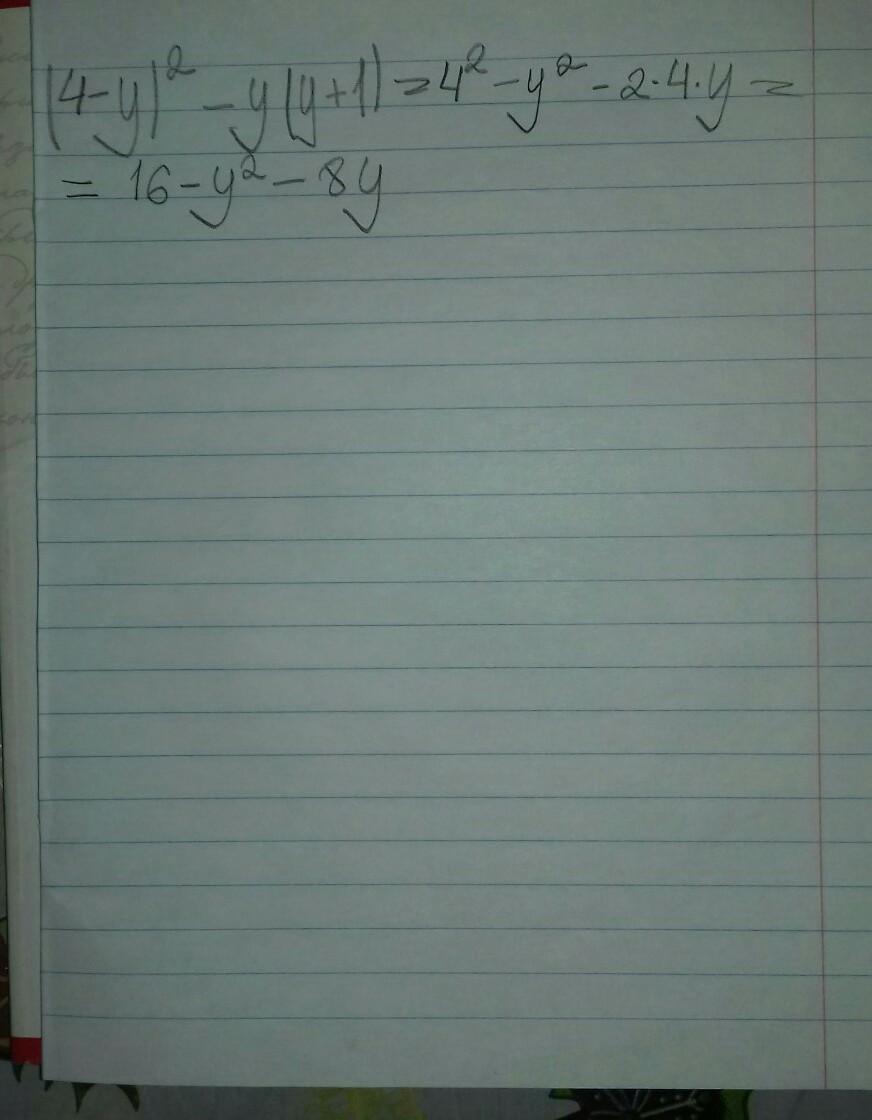 (4-y)² - y(y+1) = 4² - y² - 2·4·y =
= 16 - y² - 8y